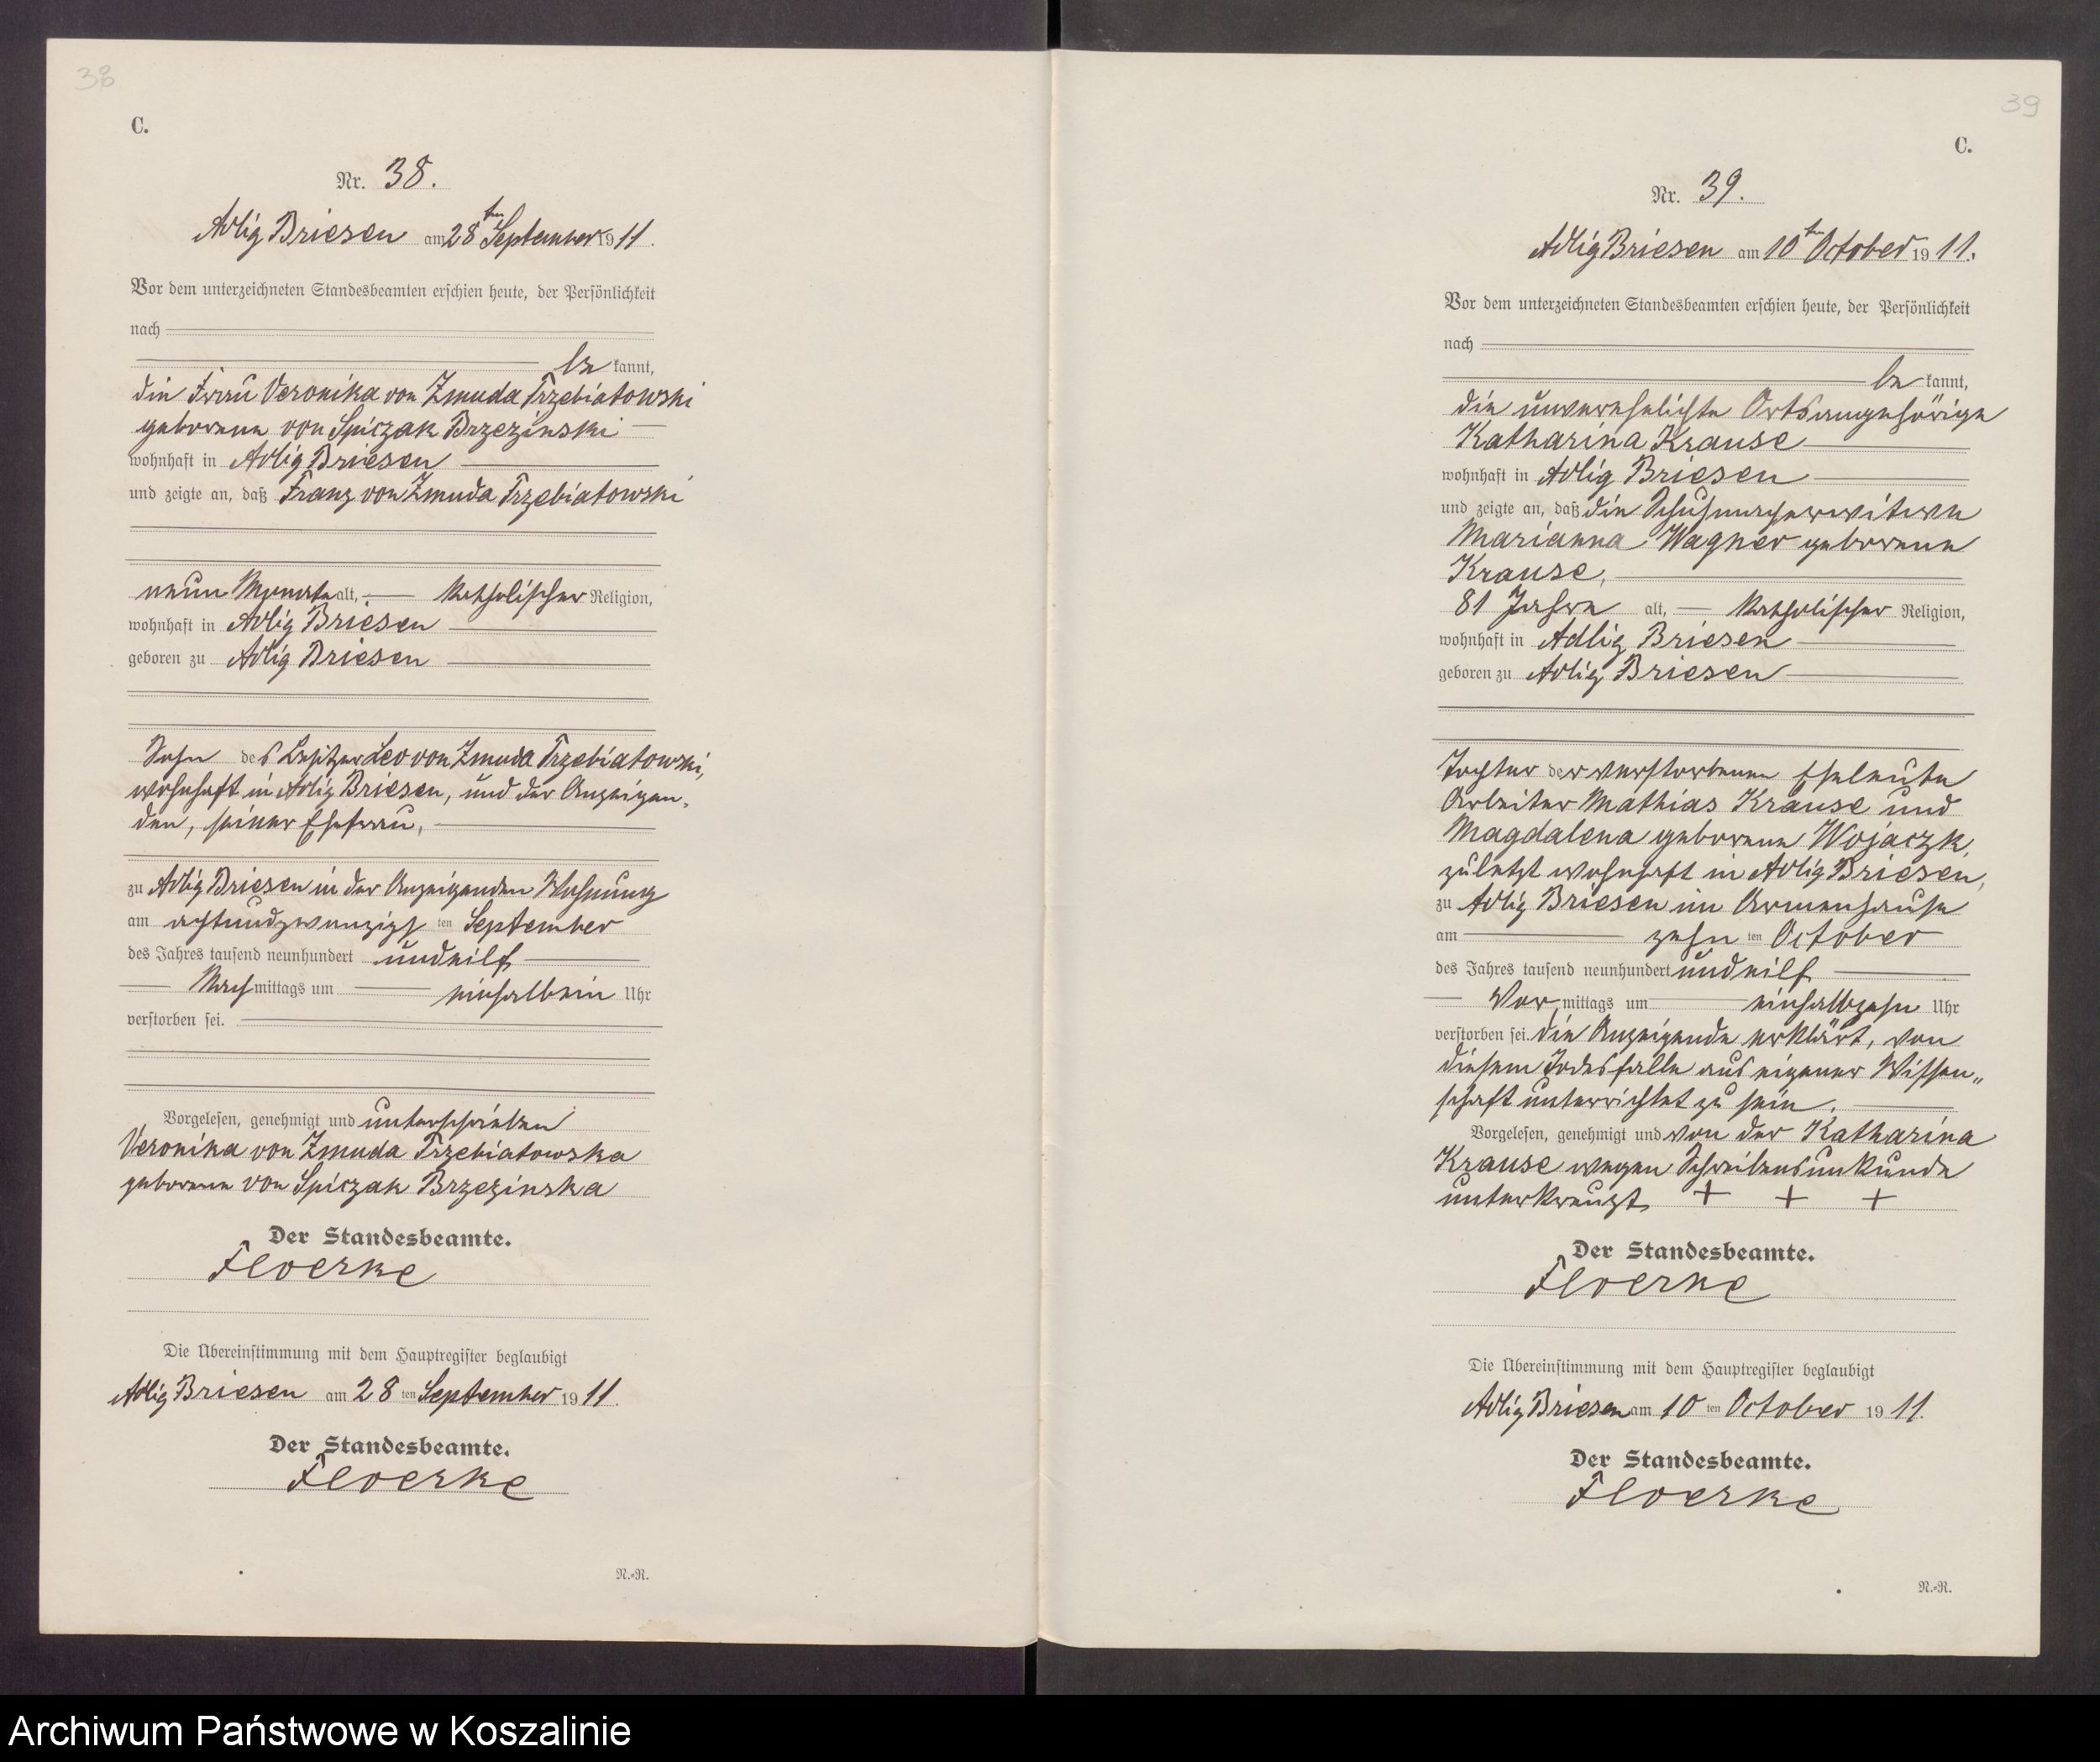 38
C.
Nr. 38.
Adlig Briesen am 28ten September 1911.
Vor dem unterzeichneten Standesbeamten erschien heute, der Persönlichkeit
nach
be kannt,
die Frau Veronika von Zmuda Trzebiatowski
geborene von Spiczak Brzezinski
wohnhaft in Adlig Briesen
und zeigte an, daß Franz von Zmuda Trzebiatowski
neun Monate alt, katholischer Religion,
wohnhaft in Adlig Briesen
geboren zu Adlig Briesen
Sohn des Besitzer Leo von Zmuda Trzebiatowski,
wohnhaft in Adlig Briesen, und der Anzeigen-
den, seiner Ehefrau,
zu Adlig Briesen in der Anzeigenden Wohnung
am achtundzwanzigsten September
des Jahres tausend neunhundert undeilf
Nachmittags um einhalbein Uhr
verstorben sei.
Vorgelesen, genehmigt und unterschrieben
Veronika von Zmuda Trzebiatowska
geborene von Spiczak Brzezinska
Der Standesbeamte.
Floerke
Die Übereinstimmung mit dem Hauptregister beglaubigt
Adlig Briesen am 28ten September 1911.
Der Standesbeamte.
Floerke
N.=R.
39
C.
Nr. 39.
Adlig Briesen am 10ten October 1911.
Vor dem unterzeichneten Standesbeamten erschien heute, der Persönlichkeit
nach
be kannt,
die unverehelichte Ortsangehörige
Katharina Krause
wohnhaft in Adlig Briesen
und zeigte an, daß die Schuhmacherwitwe
Marianna Wagner geborene
Krause,
81 Jahre alt, katholischer Religion,
wohnhaft in Adlig Briesen
geboren zu Adlig Briesen
Tochter der verstorbenen Eheleute
Arbeiter Mathias Krause und
Magdalena geborene Wojaczk,
zuletzt wohnhaft in Adlig Briesen,
zu Adlig Briesen im Armenhause
am zehnten October
des Jahres tausend neunhundert undeilf
Vormittags um einhalbzehn Uhr
verstorben sei. Die Anzeigende erklärt, von
diesem Todesfalle aus eigener Wissen„
schaft unterrichtet zu sein.
Vorgelesen, genehmigt und von der Katharina
Krause wegen Schreibensunkunde
unterkreuzt + + +
Der Standesbeamte.
Floerke
Die Übereinstimmung mit dem Hauptregister beglaubigt
Adlig Briesen am 10ten October 1911.
Der Standesbeamte.
Floerke
N.=R.
Archiwum Państwowe w Koszalinie